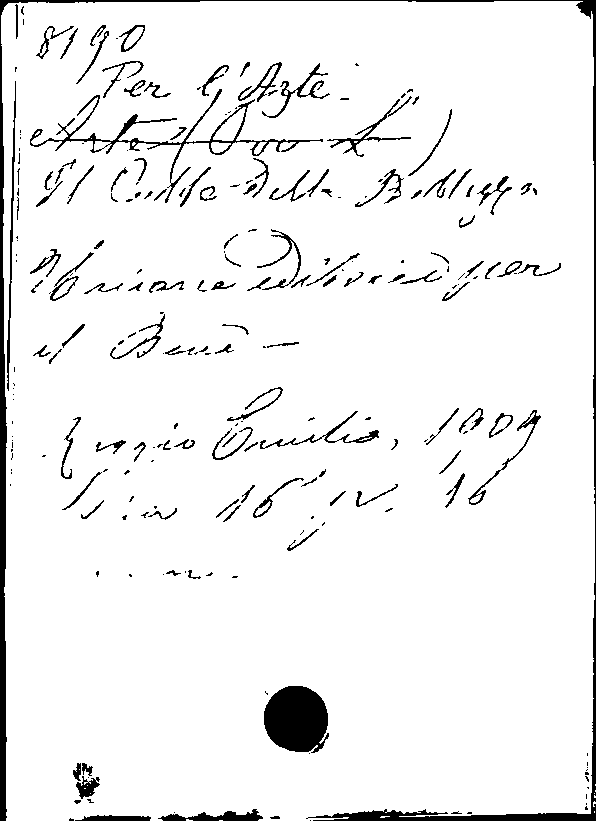 8190
Per l'Arte.
Arte (Per L')
Il Culto Della Bellezza
Unione editorice per
il Bene —
Reggio Emilia, 1909
in 16 p. 16